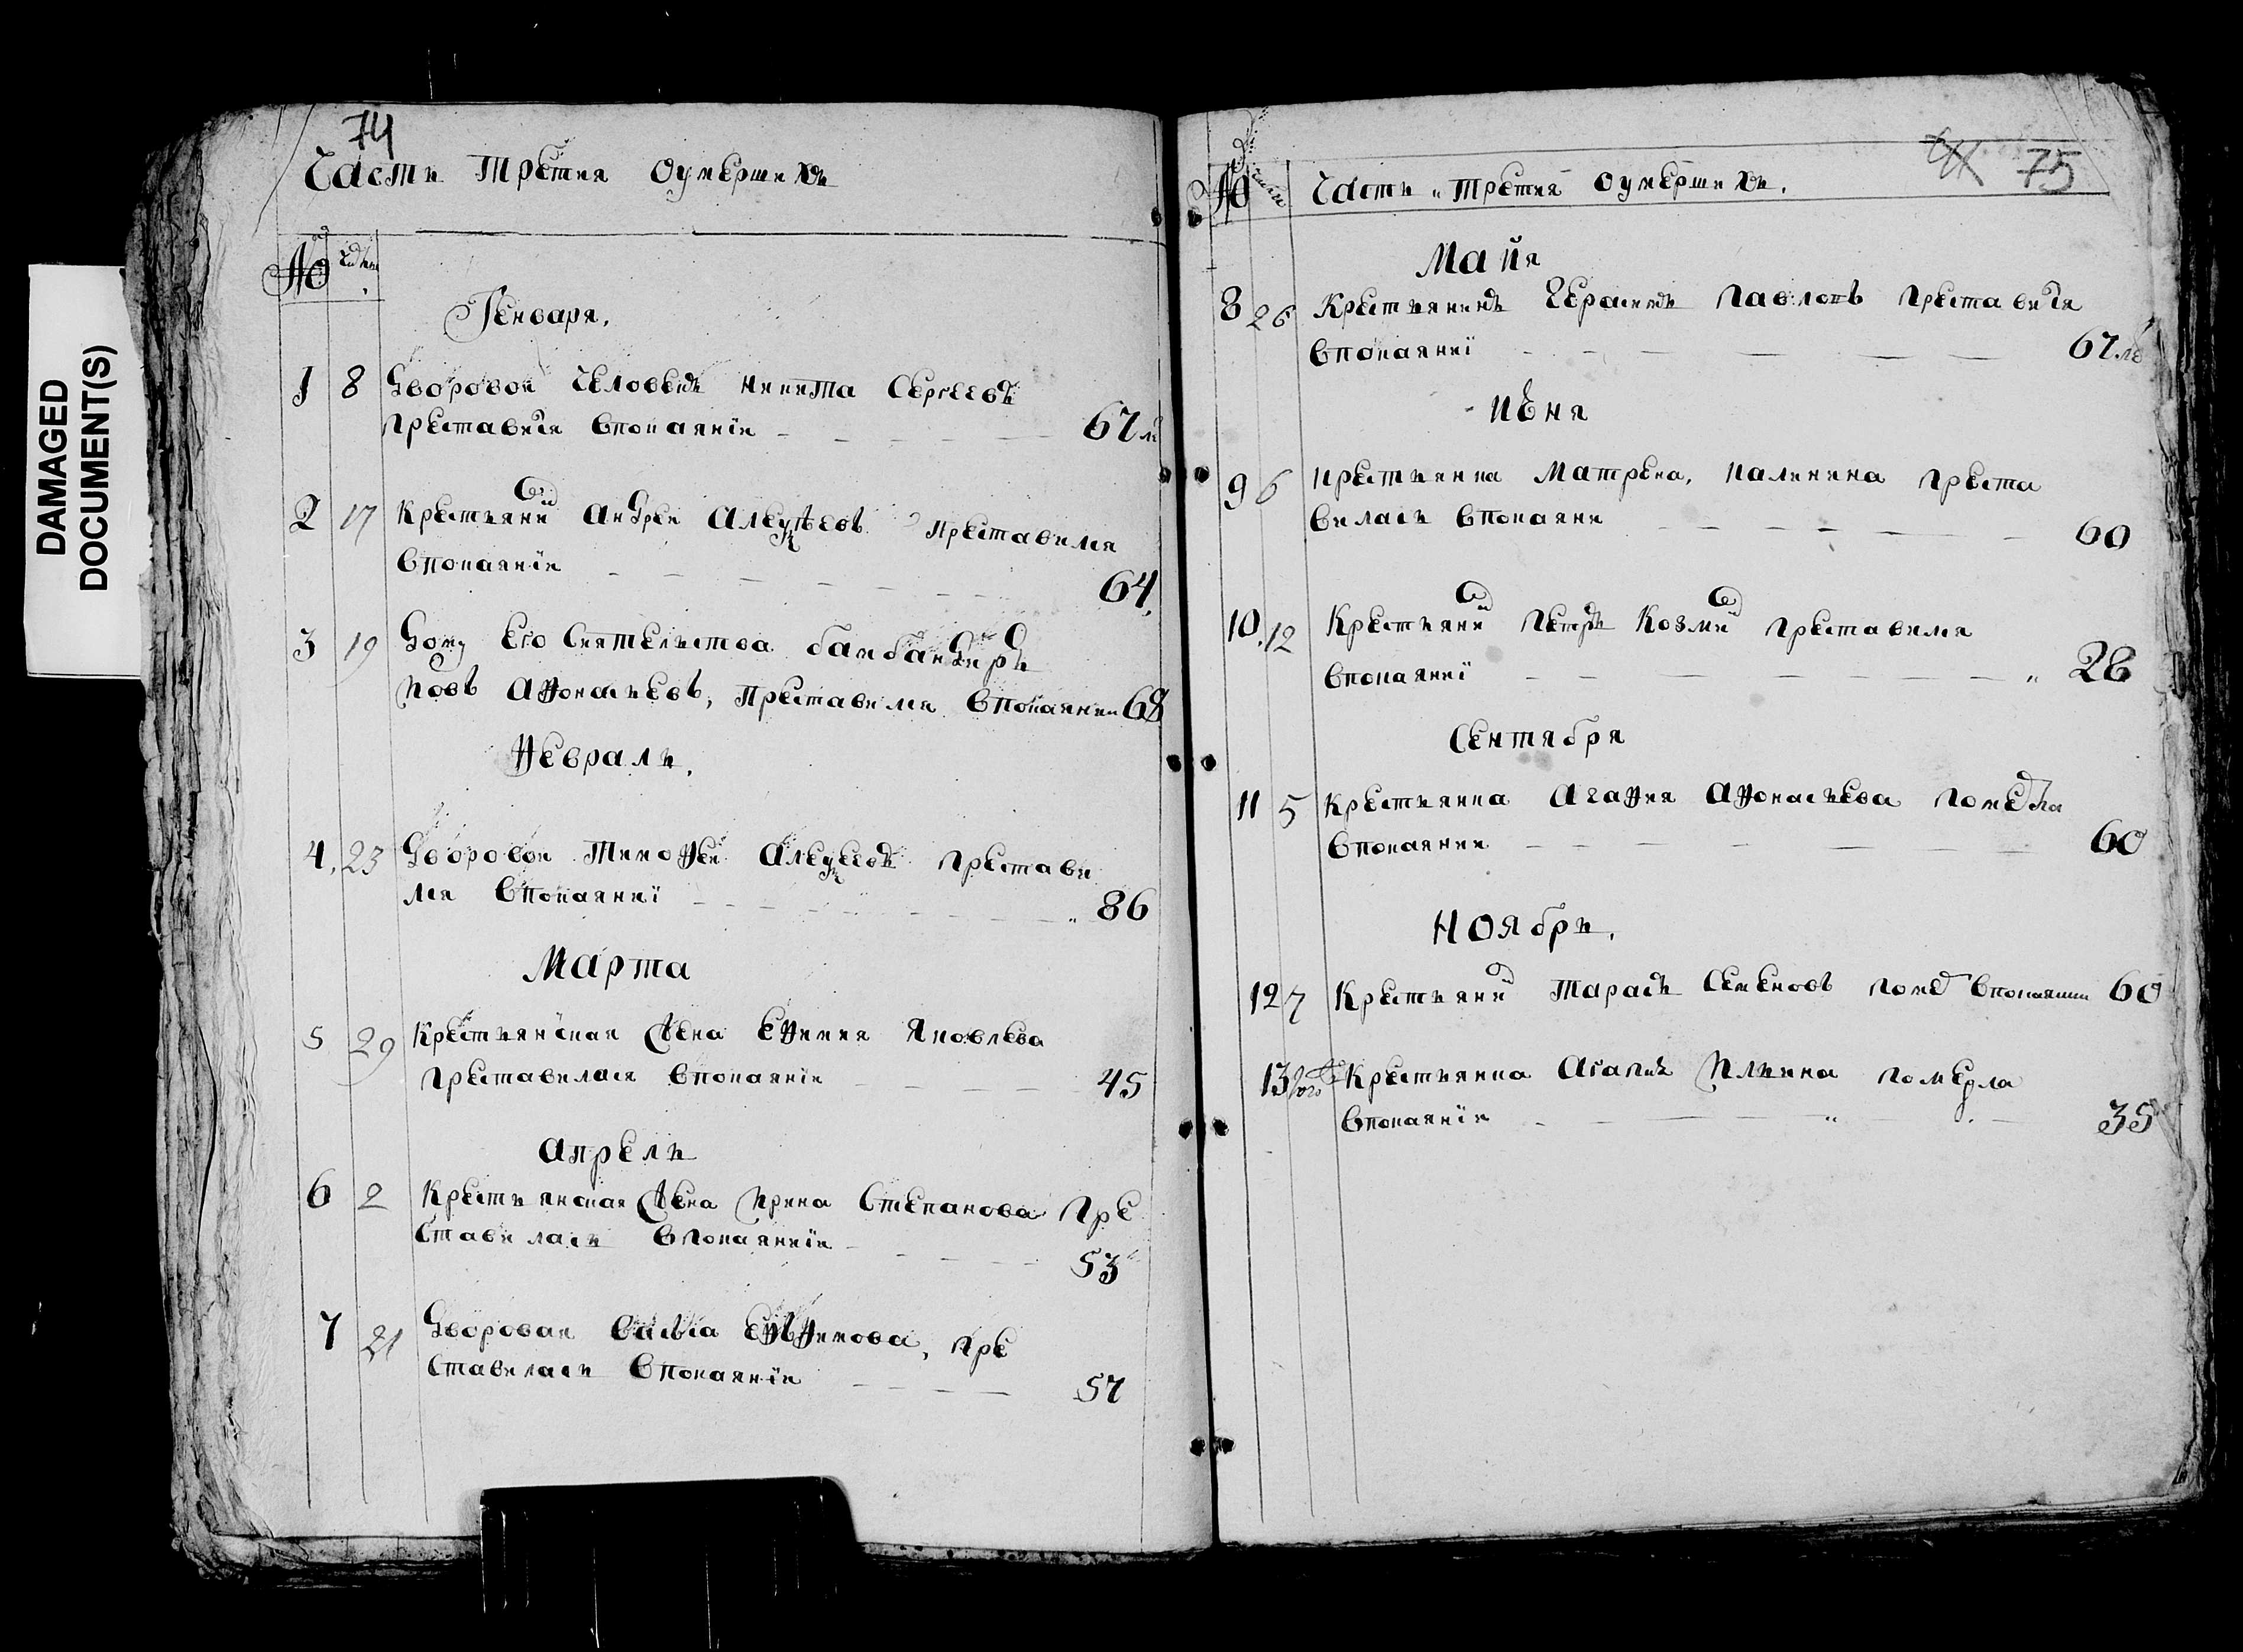 DAMAGED
DOCUMENT(S)
74
Часть Третия оумершихъ
№ числа
Генваря.
1 8 Дворовои человекъ никита Сергеевъ
преставился впокаянїи 67 ле
2 17 Крестьянинъ Андреи Алеѯѣевъ преставился
впокаянїи 64,
3 19 Дому Его Сиятельства
Яковъ Аѳонасьевъ, Преставился впокаянии 68
Ѳевраль.
4. 23 Дворовои Тимоѳеи Алеѯеевъ престави
лся впокаяниї 86
Марта
5 29 Крестьянская жена Еѳимия Яковлева
преставилася впокаянїи 45
Апрель
6 2 Крестьянская жена Ирина Степанова Пре
ставилась впокаяниїи 53
7 21 Дворовая Васса Еѳимова, пре
ставилась впокаянїи 57
75
№ числа Часть Третия оумершихъ.
Майя
8 26 Крестьянинъ Герасимъ Павловъ преставился
впокаяниї 67 ле
Июня
9 6 крестьянка Матрена, калинина преста
вилась впокаяни 60
10. 12 Крестьянинъ Петръ Козминъ преставился
впокаяниї 28
Сентября
11 5 крестьянка Агаѳия Аѳонасьева померла
впокаянии 60
Ноябрь.
12 7 Крестьянинъ Тарасъ Семеновъ поме впокаянии 60
13 Крестьянка Агапия Ильина померла
впокаянїи 35